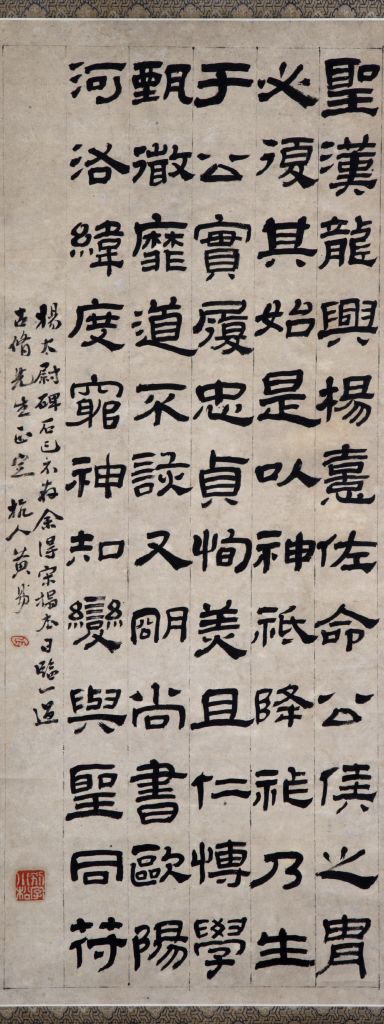 聖漢龍興楊憙佐命公侯之胄
必復其始是以神祇降祉乃生
于公實履忠貞恂美且仁愽學
甄微靡道不該又朙尚書歐陽
河洛緯度窮神知變與聖同符
楊太尉碑石已不存余得宋搨本日臨一過
古脩先生正定 杭人黃易
別字小松